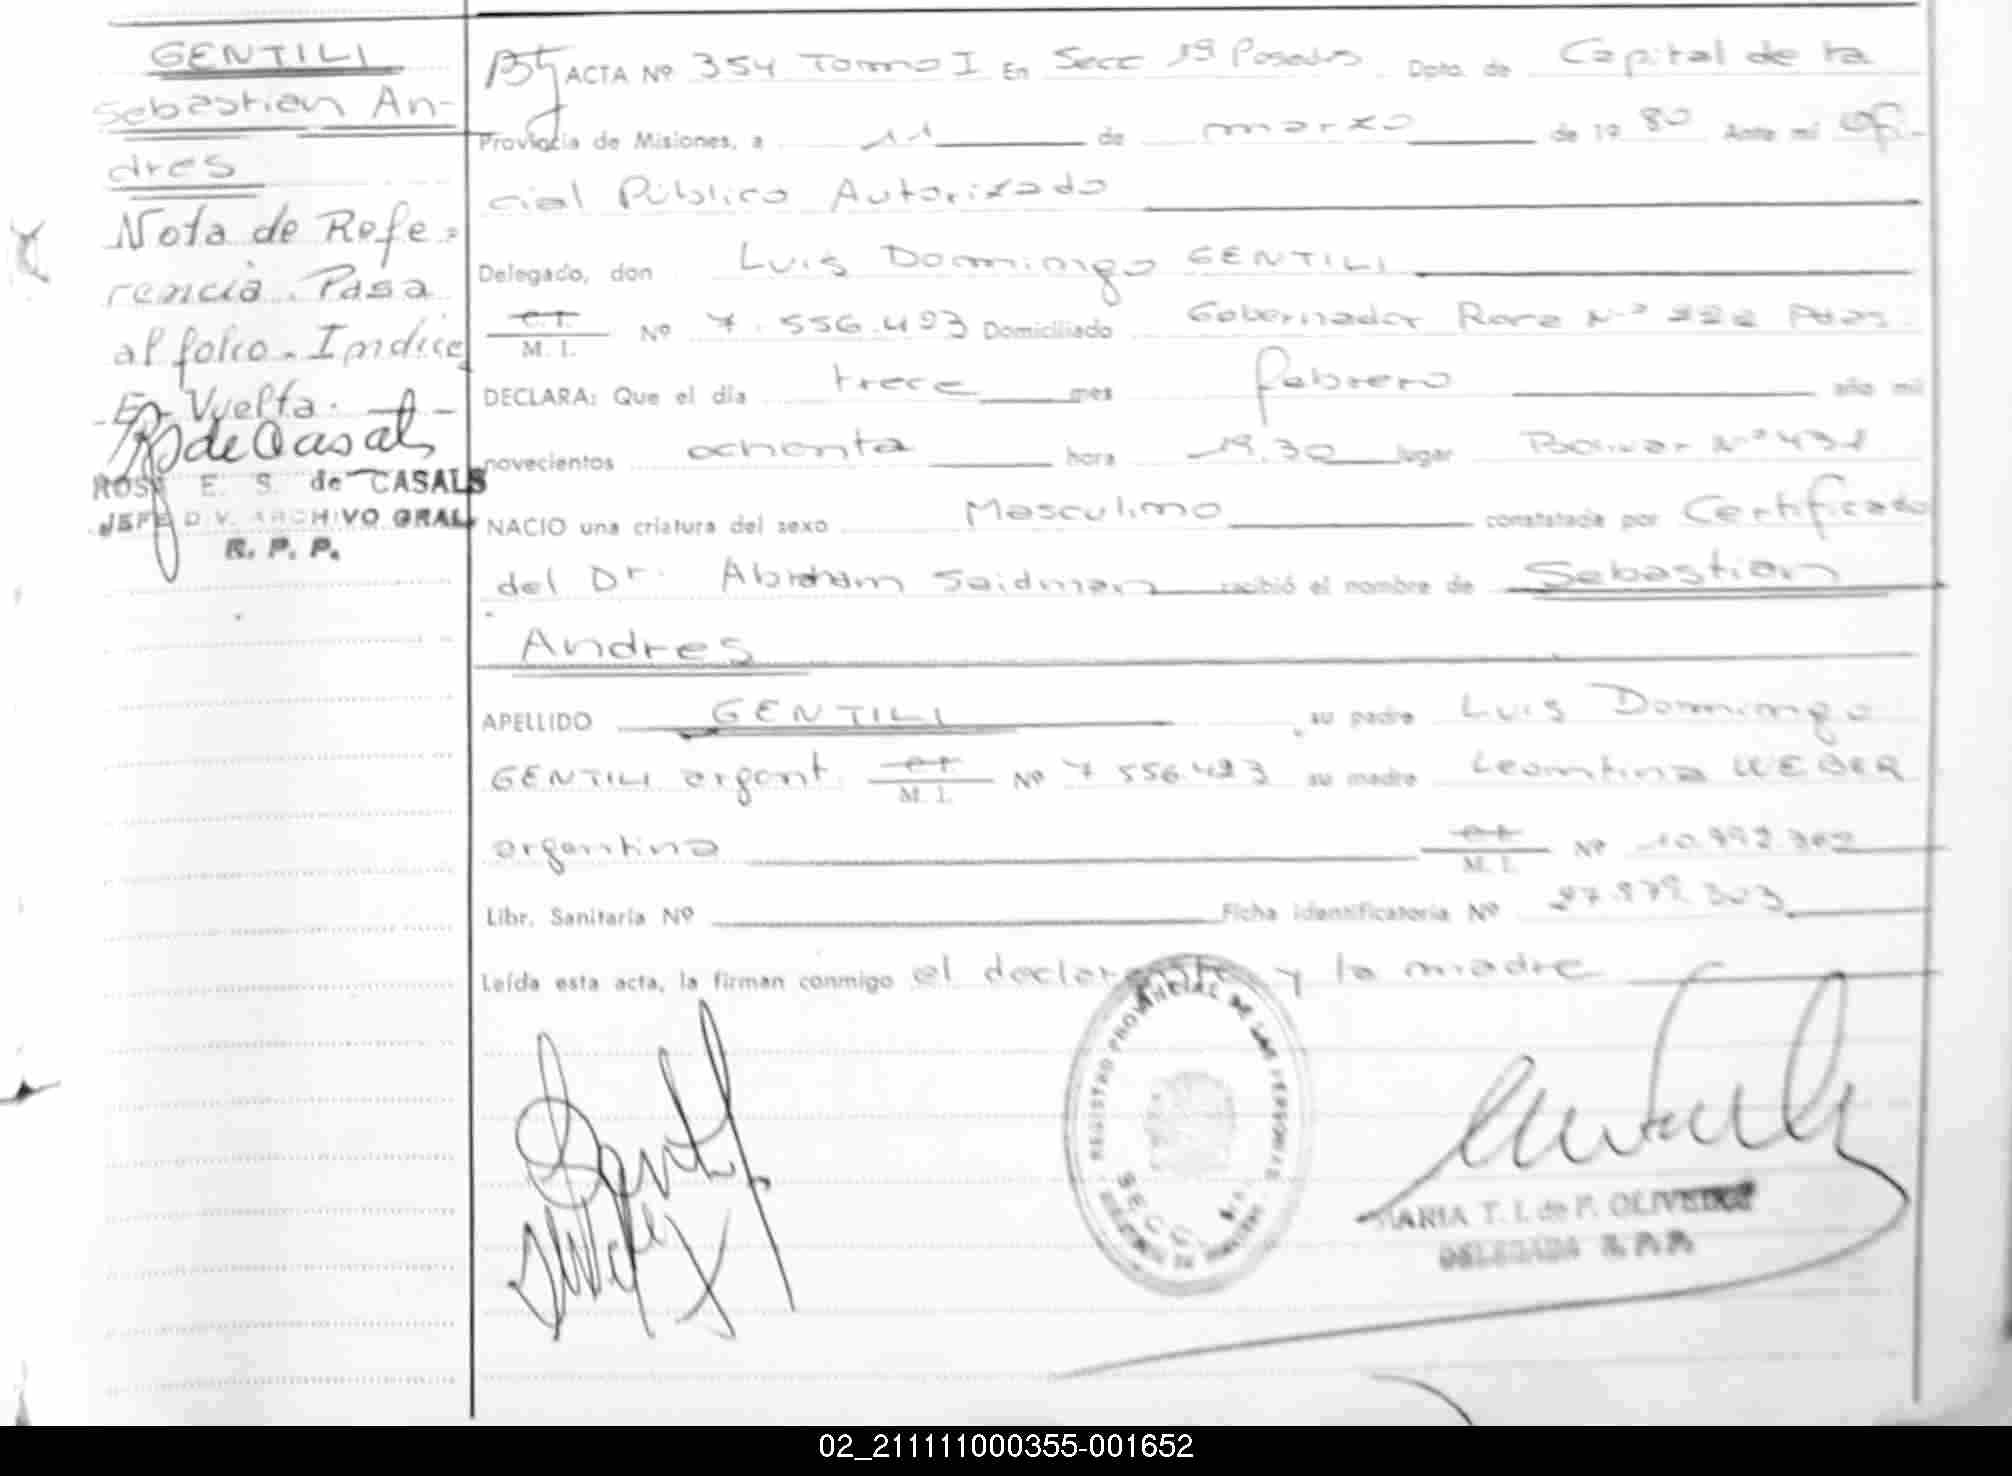 GENTILI
Sebastian An-
dres
Nota de Refe-
rencia. Pasa
al folio. Indice
E. Vuelta.
de Casals
ROSA E. S. de CASALS
JEFE DIV. ARCHIVO GRAL.
R. P. P.
ACTA Nº 354 Tomo I En Secc 1ª Posadas Dpto. de Capital de la
Provincia de Misiones, a 11 de marzo de 1980 Ante mi Ofi-
cial Público Autorizado
Delegado, don Luis Domingo GENTILI
C.I. M. I. Nº 7.556.423 Domiciliado Gobernador Roca Nº Pdas.
DECLARA: Que el día trece mes febrero año mil
novecientos ochenta hora 19.30 lugar Bolivar Nº 431
NACIO una criatura del sexo Masculino constatada por Certificado
del Dr. Abraham Seidman recibió el nombre de Sebastian
Andres
APELLIDO GENTILI, su padre Luis Domingo
GENTILI argent. C.I. M. I. Nº 7.556.423 su madre Leontina WEBER
argentina C.I. M. I. Nº
Libr. Sanitaria Nº Ficha identificatoria Nº 27.879.303
Leída esta acta, la firman conmigo el declarante y la madre
REGISTRO PROVINCIAL DE LAS PERSONAS
SECC.
MARIA T. I. de F. OLIVEDOT
DELEGADA
02_211111000355-001652